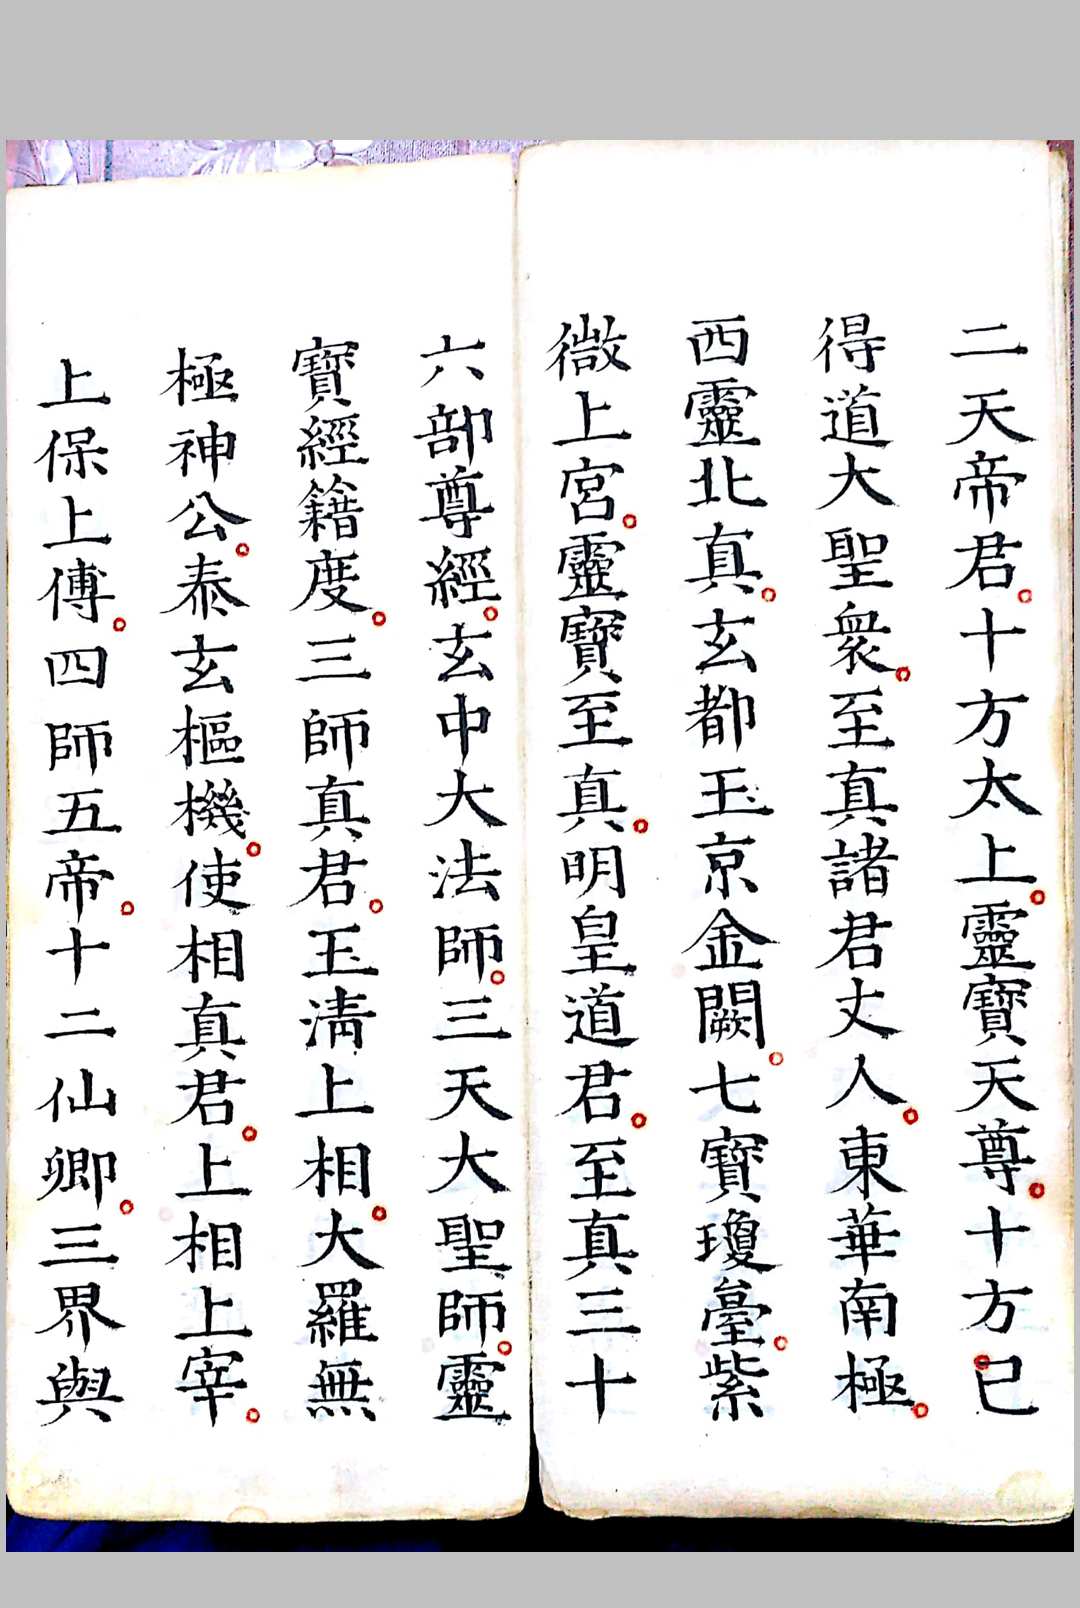 二天帝君。十方太上。靈寶天尊。十方已
得道大聖眾。至真諸君丈人。東華南極。
西靈北真。玄都玉京金闕。七寶瓊臺。紫
微上宮。靈寶至真。明皇道君。至真三十
六部尊經。玄中大法師。三天大聖師。靈
寶經籍度。三師真君。玉清上相。大羅無
極神公。泰玄樞機。使相真君。上相上宰。
上保上傅。四師五帝。十二仙卿。三界與